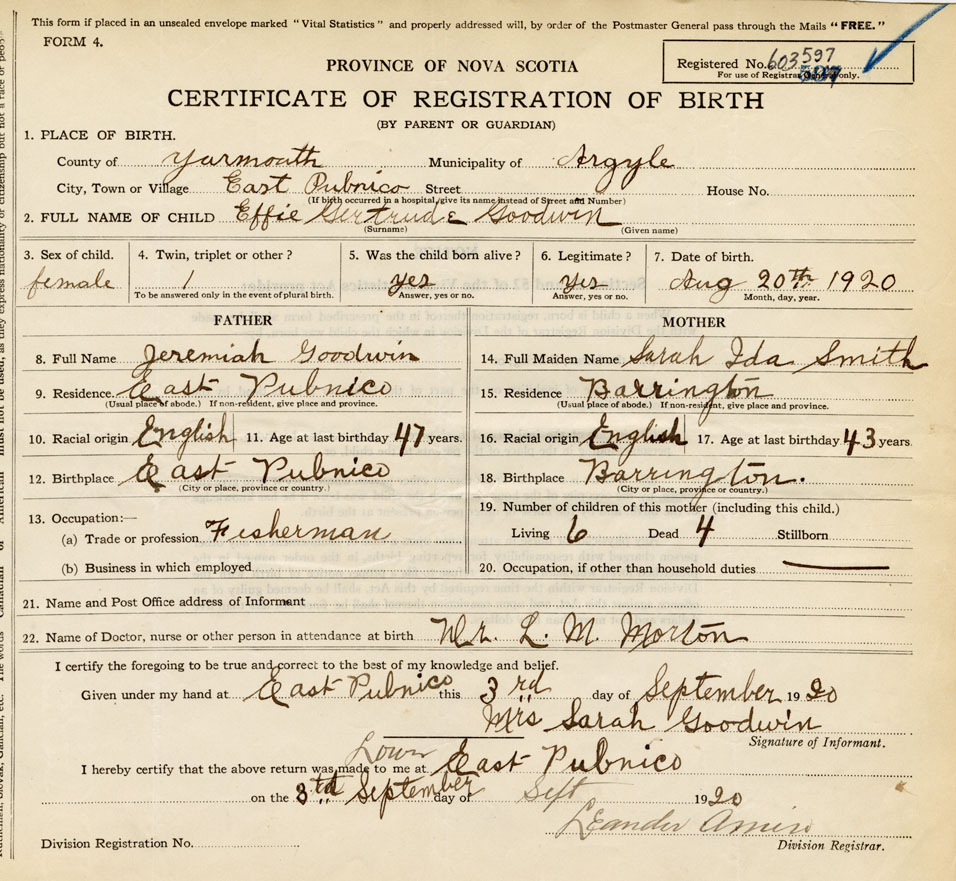 This form if placed in an unsealed envelope marked "Vital Statistics" and properly addressed will, by order of the Postmaster General pass through the Mails "FREE."
FORM 4.
Registered No. 603597
For use of Registrar General only.
PROVINCE OF NOVA SCOTIA
CERTIFICATE OF REGISTRATION OF BIRTH
(BY PARENT OR GUARDIAN)
1. PLACE OF BIRTH.
County of Yarmouth Municipality of Argyle
City, Town or Village East Pubnico Street House No.
(If birth occurred in a hospital, give its name instead of Street and Number)
2. FULL NAME OF CHILD Effie Gertrude Goodwin
(Surname) (Given name)
3. Sex of child. 4. Twin, triplet or other? 5. Was the child born alive? 6. Legitimate? 7. Date of birth.
female 1 yes Yes Aug 20th 1920
To be answered only in the event of plural birth. Answer, yes or no. Answer, yes or no. Month, day, year.
FATHER
8. Full Name Jeremiah Goodwin
9. Residence East Pubnico
(Usual place of abode.) If non-resident, give place and province.
10. Racial origin English 11. Age at last birthday 47 years.
12. Birthplace East Pubnico
(City or place, province or country.)
13. Occupation:—
(a) Trade or profession Fisherman
(b) Business in which employed
MOTHER
14. Full Maiden Name Sarah Ida Smith
15. Residence Barrington
(Usual place of abode.) If non-resident, give place and province.
16. Racial origin English 17. Age at last birthday 43 years.
18. Birthplace Barrington.
(City or place, province or country.)
19. Number of children of this mother (including this child.)
Living 6 Dead 4 Stillborn
20. Occupation, if other than household duties
21. Name and Post Office address of Informant
22. Name of Doctor, nurse or other person in attendance at birth L. M. Morton
I certify the foregoing to be true and correct to the best of my knowledge and belief.
Given under my hand at East Pubnico this 3rd day of September 1920
Mrs Sarah Goodwin
Signature of Informant.
I hereby certify that the above return was made to me at East Pubnico
on the 3rd September day of Sept 1920
Leander
Division Registration No. Division Registrar.